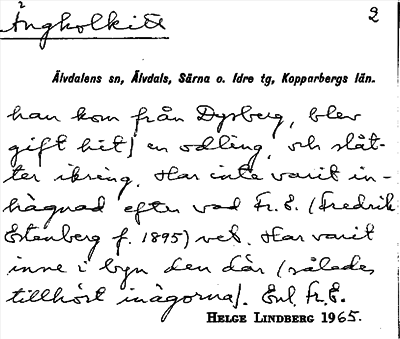 Ängkolkitt 2
Älvdalens sn, Älvdals, Särna o. Idre tg, Kopparbergs län.
han kom från Dysberg, blev
gift hit] en odling, och slåt-
ter ikring. Har inte varit in-
hägnad efter vad Fr. E. (Fredrik
Estenberg f. 1895) vet. Har varit
inne i byn den där (således
tillhört inägorna). Enl. Fr. E.
HELGE LINDBERG 1965.